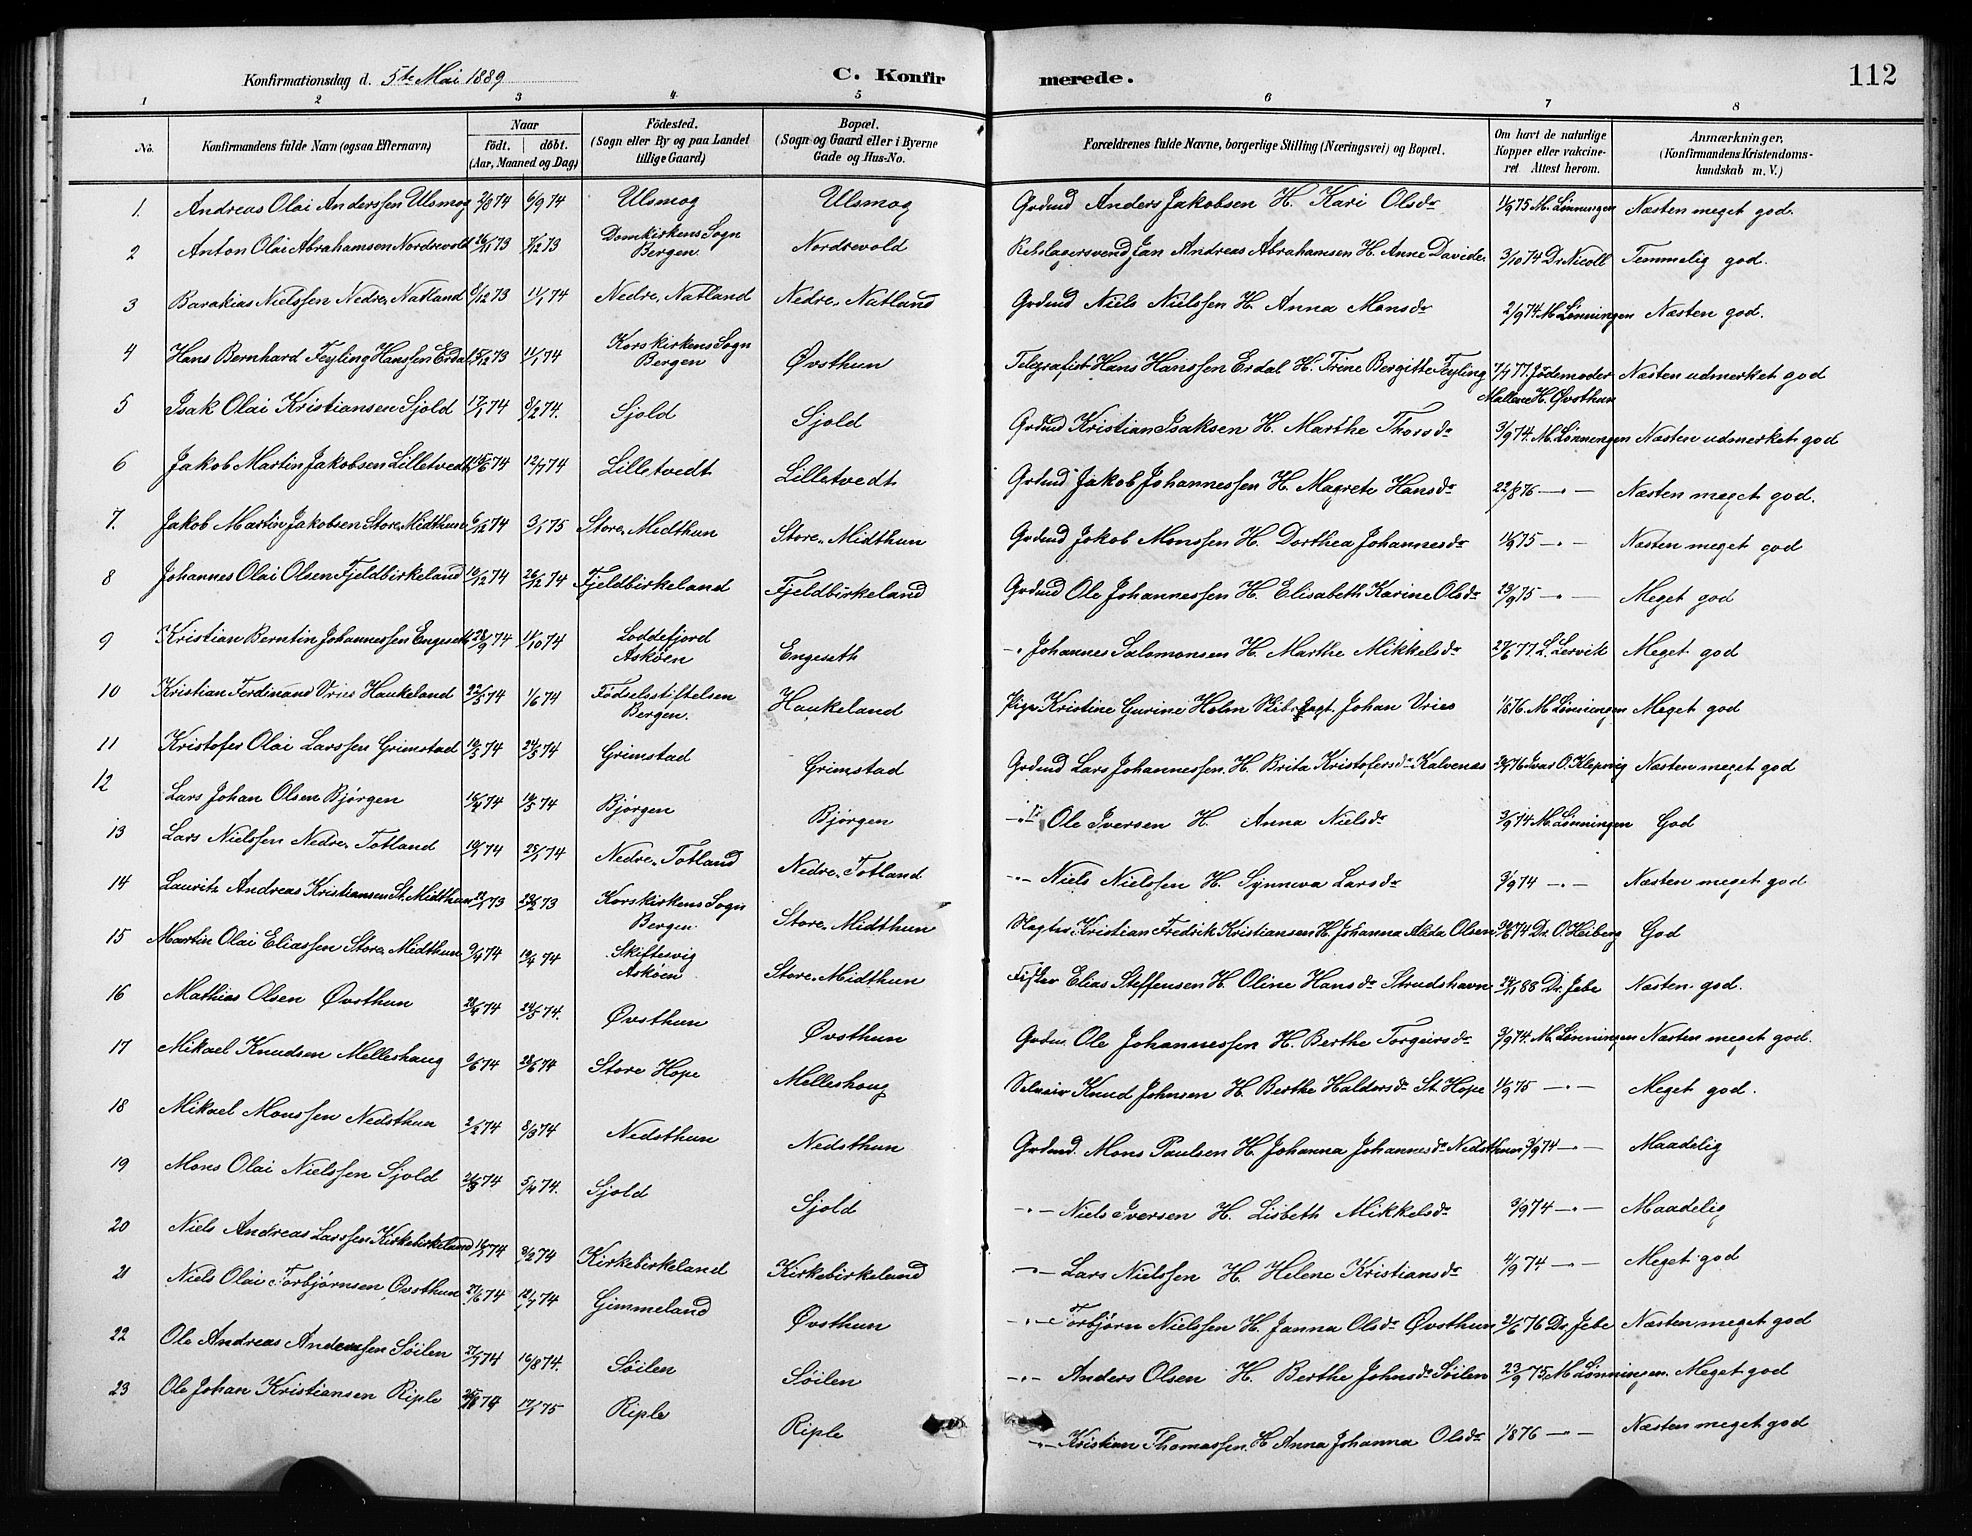 Konfirmationsdag d. 5te Mai 1889
C. Konfirmerede.
112
1 2 3 4 5 6 7 8
No. Konfirmandens fulde Navn (ogsaa Efternavn) Naar födt. döbt. (Aar, Maaned og Dag) Födested. (Sogn eller By og paa Landet tillige Gaard) Bopæl. (Sogn og Gaard eller i Byerne Gade og Hus-No. Forældrenes fulde Navne, borgerlige Stilling (Næringsvei) og Bopæl. Om havt de naturlige Kopper eller vakcineret Attest herom. Anmærkninger, (Konfirmandens Kristendomskundskab m. V.)
1. Andreas Olai Anderssen Ulsmog 6/9 74 Ulsmog Ulsmog Grdmd Anders Jakobsen H. Kari Olsdr 1/9 75 M. Lønningen Næsten meget god.
2 Anton Olai Abrahamsen Nordrevold Domkirkens Sogn Bergen. Nordrevold Jan Andreas Abrahamsen H. Anne Davids. 3/10 74 Dr Nicoll Temmelig god.
3 Barakias Nielssen Nedre Natland 6/12 73 11/1 74 Nedre Natland Nedre Natland Grdmd Niels Nielssen H. Anna Monsdr 2/9 74 M Lønningen Næsten god.
4 Hans Bernhard Feyling Hanssen Erdal 11/1 74 Korskirkens Sogn Bergen Øvsthun Telegrafist Hans Hanssen Erdal H. Trine Bergitte Feyling 7/4 77. Jødemoder Mallene H. Øvsthun Næsten udmerket god
5 Isak Olai Kristiansen Sjold 17/1 74 8/2 74. Sjold Sjold Grdmd Kristian Isaksen H. Marthe Thorsdr 3/9 74. M. Lønningen Næsten udmerket god
6 Jakob Martin Jakobsen Lilletvedt 12/7 74 Lilletvedt Lilletvedt Grdmd Jakob Johannessen H. Magrete Hansdr 22/8 76 —"— Næsten meget god.
7. Jakob Martin Jakobsen Store Midthun 6/12 74 3/1 75 Store Midthun Store Midthun Grdmd Jakob Monssen H. Dorthea Johannesdr 1/9 75 —"— Næsten meget god
8 Johannes Olai Olsen Fjeldbirkeland 10/12 74 26/12 74 Fjeldbirkeland Fjeldbirkeland Grdmd Ole Johannessen H. Elisabeth Karine Olsdr 23/9 75 —"— Meget god
9 Kristian Berntin Johannessen Engeseth 28/9 74 11/10 74 Loddefjord Askøen Engeseth —"— Johannes Salomonsen H. Marthe Mikkelsdr 27/6 77. L. Lervik Meget god
10 Kristian Ferdinand Vries Haukeland 22/5 74 1/6 74 Fødselsstiftelsen Bergen. Haukeland Pige Kristine Gurine Holm Johan Vries 1/8 76. M. Lønningen Meget god
11 Kristofer Olai Larssen Grimstad 10/5 74 24/5 74 Grimstad Grimstad Grdmd Lars Johannessen. H. Brita Kristofersdr Kalvenæs Næsten meget god
12 Lars Johan Olsen Bjørgen Bjørgen Bjørgen Ole Iversen H. Anna Nielsdr 3/9 74 M. Lønningen God
13 Lars Nielssen Nedre Totland 10/1 74 25/1 74 Nedre Totland Nedre Totland —"— Niels Nielssen H. Synneva Larsdr 3/9 74 —"— Næsten meget god
14 Lauritz Andreas Kristiansen St. Midthun Korskirkens Sogn Bergen. Store Midthun Kristian Fredrik Kristiansen H. Johanna Alida Olsen Dr. O. Heiberg God
15 Martin Olai Eliassen Store Midthun 9/4 74 19/4 74 Skiftesvig Askøen Store Midthun Fisker Elias Steffensen H. Oline Hansdr Strudshavn 24/11 88 Dr. Jebe Næsten god.
16 Mathias Olsen Øvsthun 24/5 74. Øvsthun Øvsthun Grdm. Ole Johannessen H. Berthe Torgeirsdr 3/9 74. M. Lønningen Næsten meget god.
17 Mikael Knudsen Melleshaug 9/6 74 28/6 74 Store Hope Melleshoug Knud Johnsen H. Berthe Haldorsdr St. Hope 1/9 75 —"— Meget god.
18 Mikael Monssen Nedsthun 2/2 74 8/3 74 Nedsthun Nedsthun Grdmd. Mons Paulsen H. Johanna Johannesdr Nedsthun 3/9 74 —"— Maadelig
19 Mons Olai Nielssen Sjold 5/4 74. Sjold Sjold —"— Niels Iversen H. Lisbeth Mikkelsdr 3/9 74 —"— Maadelig
20 Niels Andreas Larssen Kirkebirkeland Kirkebirkeland Kirkebirkeland —"— Lars Nielssen H. Helene Kristiansdr 4/9 74 —"— Meget god
21 Niels Olai Torbjørnsen Øvsthun 21/6 74 12/7 74 Gimmeland Øvsthun —"— Torbjørn Nielssen H. Janna Olsdr Øvsthun 21/6 76 Dr. Jebe Næsten meget god
22 Ole Andreas Anderssen Søilen 27/7 74 16/8 74. Søilen Søilen —"— Anders Olsen H. Berthe Johnsdr Søilen 23/9 75. M Lønningen. Meget god
23 Ole Johan Kristiansen Riple 17/1 75 Riple Riple —"— Kristian Thomassen. H Anna Johanna Olsdr 1/8 76 —"— Næsten meget god